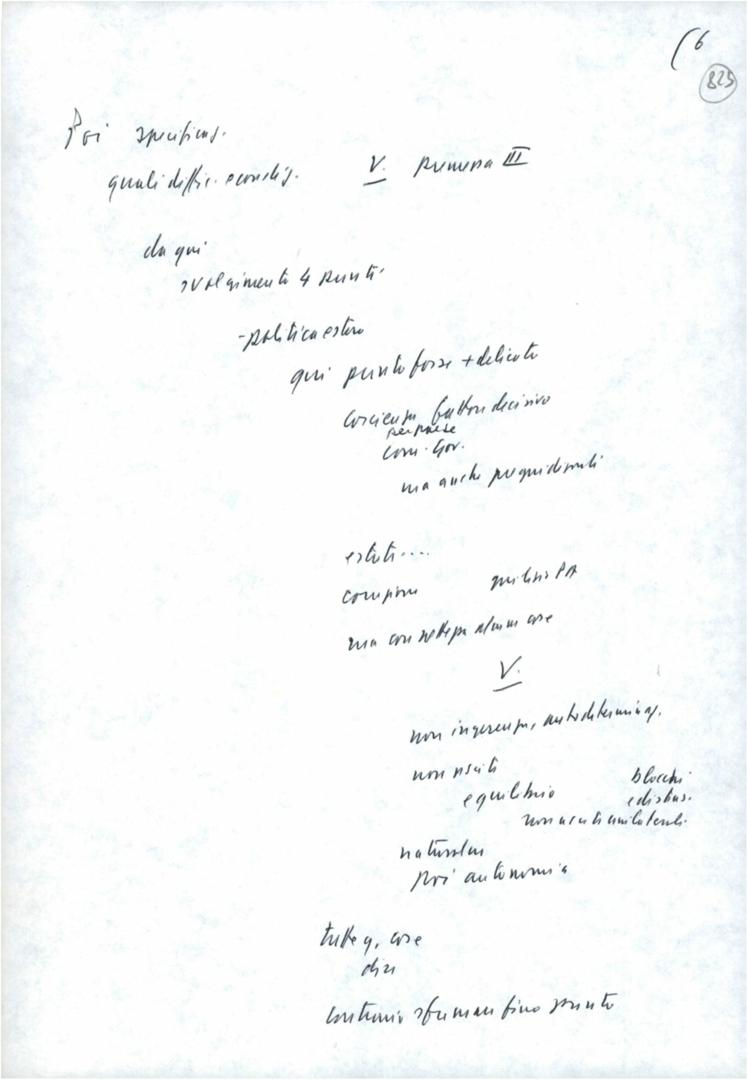 (6
825
Poi specificaz.
quali diffic. econ
V. premessa III
da qui
svolgimento 4 punti
- politica estera
qui punto forse + delicato
coscienza fattore decisivo
per paese
com. Gov.
ma anche pregiudiziali
estati....
ma con alcune cose
V.
non ingerenza, autodeterminaz.
non usciti
equilibrio
blocchi
e disten.
non usciti unilateral.
naturalm
poi autonomia
tutte q. cose
dire
contrario sfumare fino punto